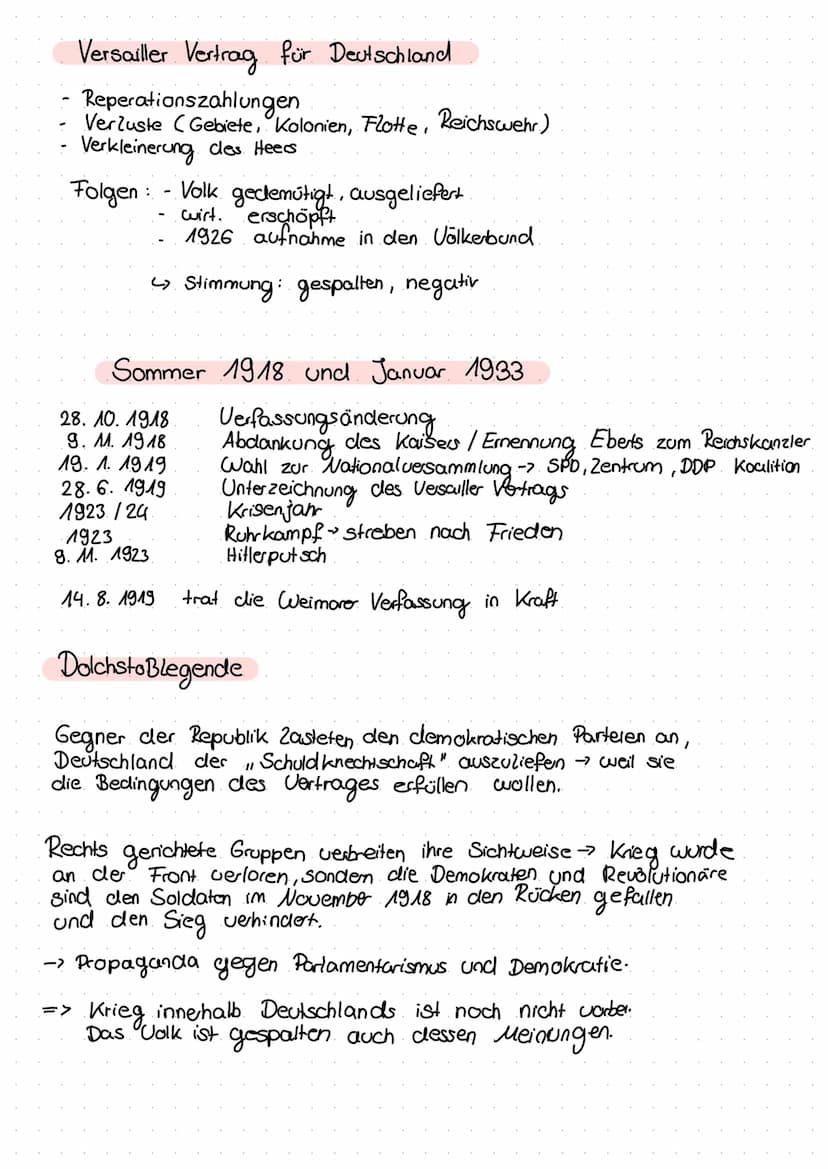 Versailler Vertrag für Deutschland
- Reperationszahlungen
- Verluste (Gebiete, Kolonien, Flotte, Reichswehr)
- Verkleinerung des Heers
Folgen: - Volk gedemütigt, ausgeliefert
- wirt. erschöpft
- 1926 aufnahme in den Völkerbund
↳ Stimmung: gespalten, negativ
Sommer 1918 und Januar 1933
28. 10. 1918 Verfassungsänderung
9. 11. 1918 Abdankung des Kaisers / Ernennung Eberts zum Reichskanzler
19. 1. 1919 Wahl zur Nationalversammlung -> SPD, Zentrum, DDP Koalition
28. 6. 1919 Unterzeichnung des Versailler Vertrags
1923 / 24 Krisenjahr
1923 Ruhrkampf → streben nach Frieden
8. 11. 1923 Hitlerputsch
14. 8. 1919 trat die Weimarer Verfassung in Kraft
Dolchstoßlegende
Gegner der Republik lasteten den demokratischen Parteien an,
Deutschland der „Schuldknechtschaft" auszuliefern → weil sie
die Bedingungen des Vertrages erfüllen wollen.
Rechts gerichtete Gruppen verbreiten ihre Sichtweise → Krieg wurde
an der Front verloren, sondern die Demokraten und Revolutionäre
sind den Soldaten im November 1918 in den Rücken gefallen
und den Sieg verhindert.
-> Propaganda gegen Parlamentarismus und Demokratie.
=> Krieg innerhalb Deutschlands ist noch nicht vorbei.
Das Volk ist gespalten auch dessen Meinungen.